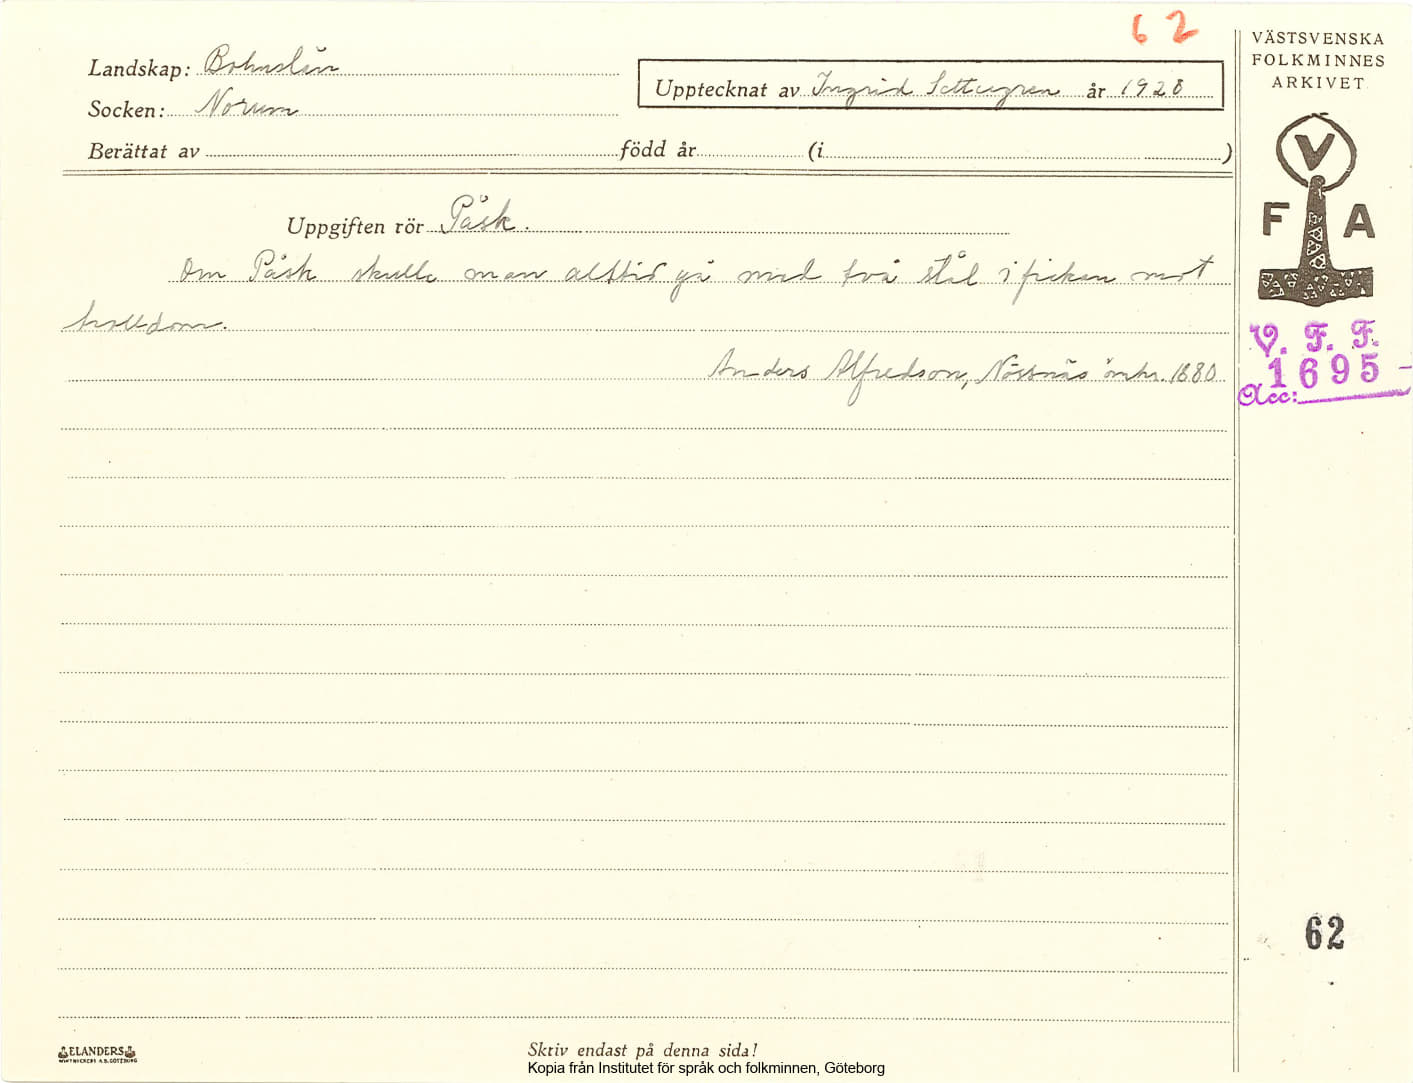 62
Landskap: Bohuslän
Socken: Norum
Upptecknat av Ingrid Settergren år 1928
Berättat av född år (i )
VÄSTSVENSKA
FOLKMINNES
ARKIVET
V
F A
Uppgiften rör Påsk.
Om Påsk skulle man alltid gå med två stål i fickan mot
trolldom.
Anders Alfredson, Nösnäs omkr. 1880
V. F. F.
1695
Acc:
62
ELANDERS
Skriv endast på denna sida!
Kopia från Institutet för språk och folkminnen, Göteborg